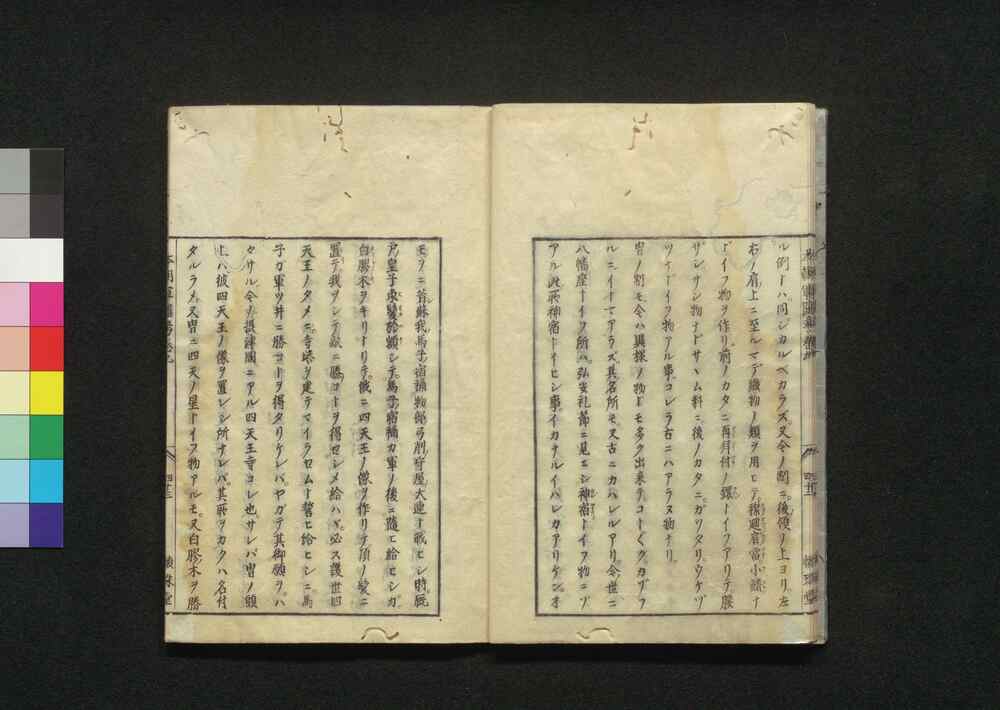 ル例トハ同ジカルベカラズ又今ノ間ニ後懐ノ上ヨリ左
右ノ肩上ニ至ルマデ織物ノ類ヲ用ヒテ襟廻肩當小鰭ナ
ドイフ物ヲ作リ前ノカタニ再月付ノ鐶トイフアリテ腰
サシサシ物ナドサヽム料ニ後ノカタニガツタリウケヅ
ツナドイフ物アル事コレラ古ニハアラヌ物ナリ
冑ノ制モ今ハ異様ノ物トモ多ク出来テコト〲クカゾフ
ルニイトマアラズ其名所モ又古ニカハレルアリ今世ニ
八幡座トイフ所ハ弘安礼節ニ見ニシ神宿トイフ物ニゾ
アル此所神宿トイヒシ事イカナルイハレカアリケンオ
モフニ昔蘇我馬子宿禰物部弓削守屋大連ト戰ヒシ時厩
戸皇子束髮於額シテ馬子宿禰カ軍ノ後ニ隨ヒ給ヒシガ
白膠木ヲキリトリテ俄ニ四天王ノ像ヲ作リテ頂ノ髪ニ
置テ我ヲシテ敵ニ勝コトヲ得セシメ給ハヾ必ス護世四
天王ノタメニ寺塔ヲ建テマイラセムト誓ヒ給ヒシニ馬
子ガ軍ツ井ニ勝コトヲ得タリケレバヤガテ其御願ヲハ
タサル今ノ攝津國ニアル四天王寺コレ也サレバ冑ノ頭
上ハ彼四天王ノ像ヲ置レシ所ナレバ其所ヲカクハ名付
タルラメ又冑ニ四天ノ星トイフ物アルモ又白膠木ヲ勝